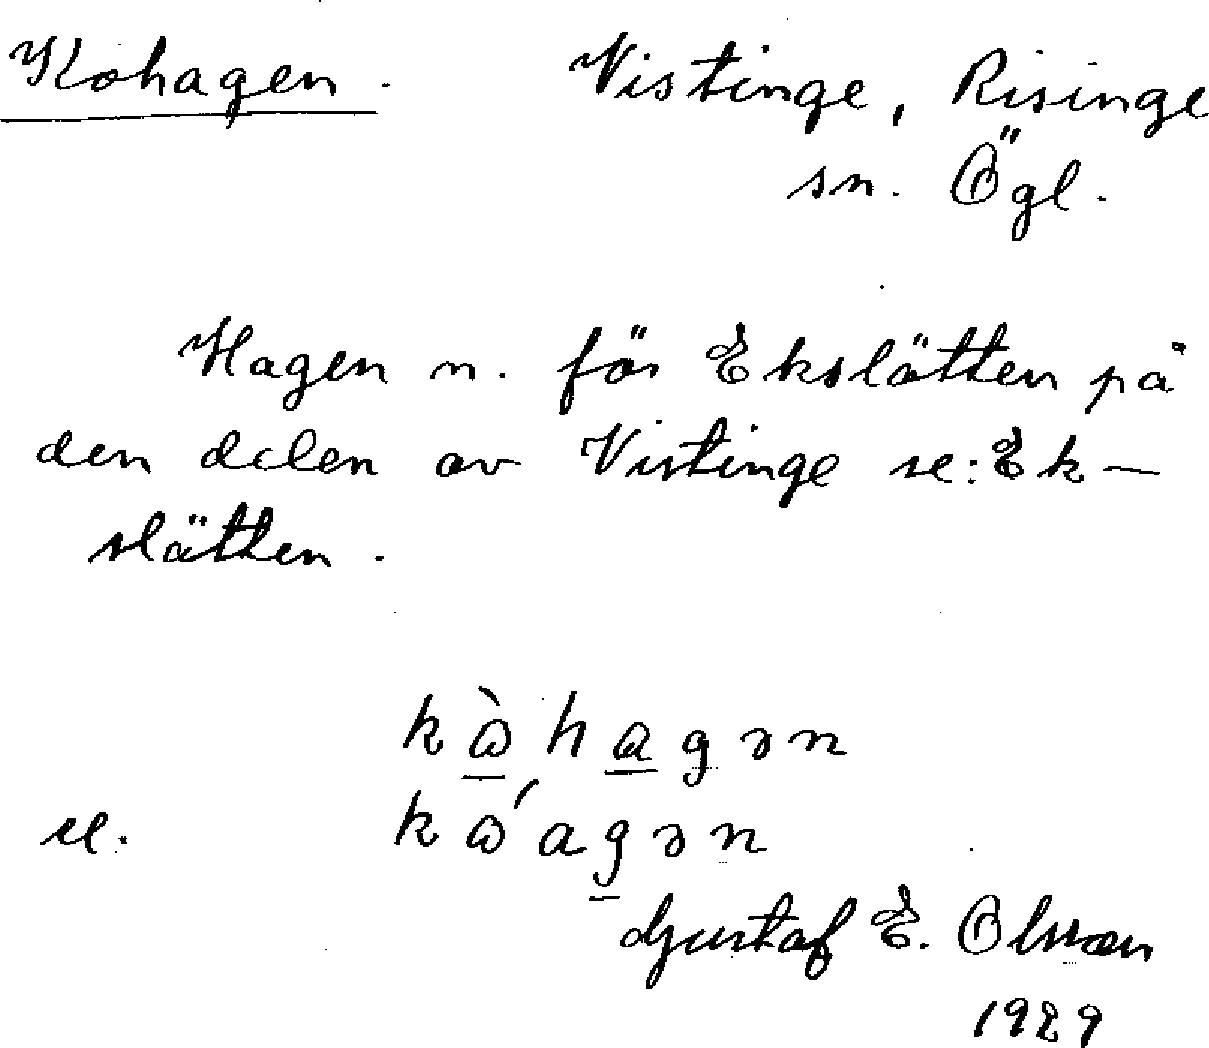 Kohagen. Vistinge, Risinge
sn. Ögl.
Hagen n. för Ekslätten på
den delen av Vistinge se: Ek-
slätten.
kὼhagən
el. kώagən
Gustaf E. Olsson
1929